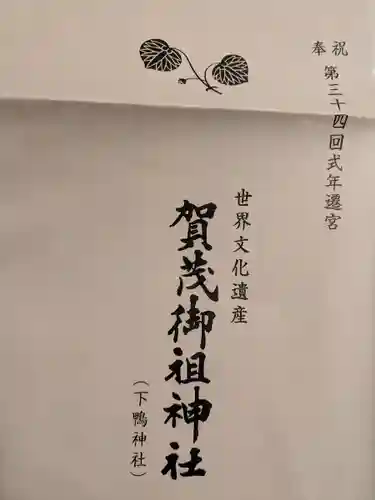 奉祝
第三十四回式年遷宮
世界文化遺産
賀茂御祖神社
(下鴨神社)